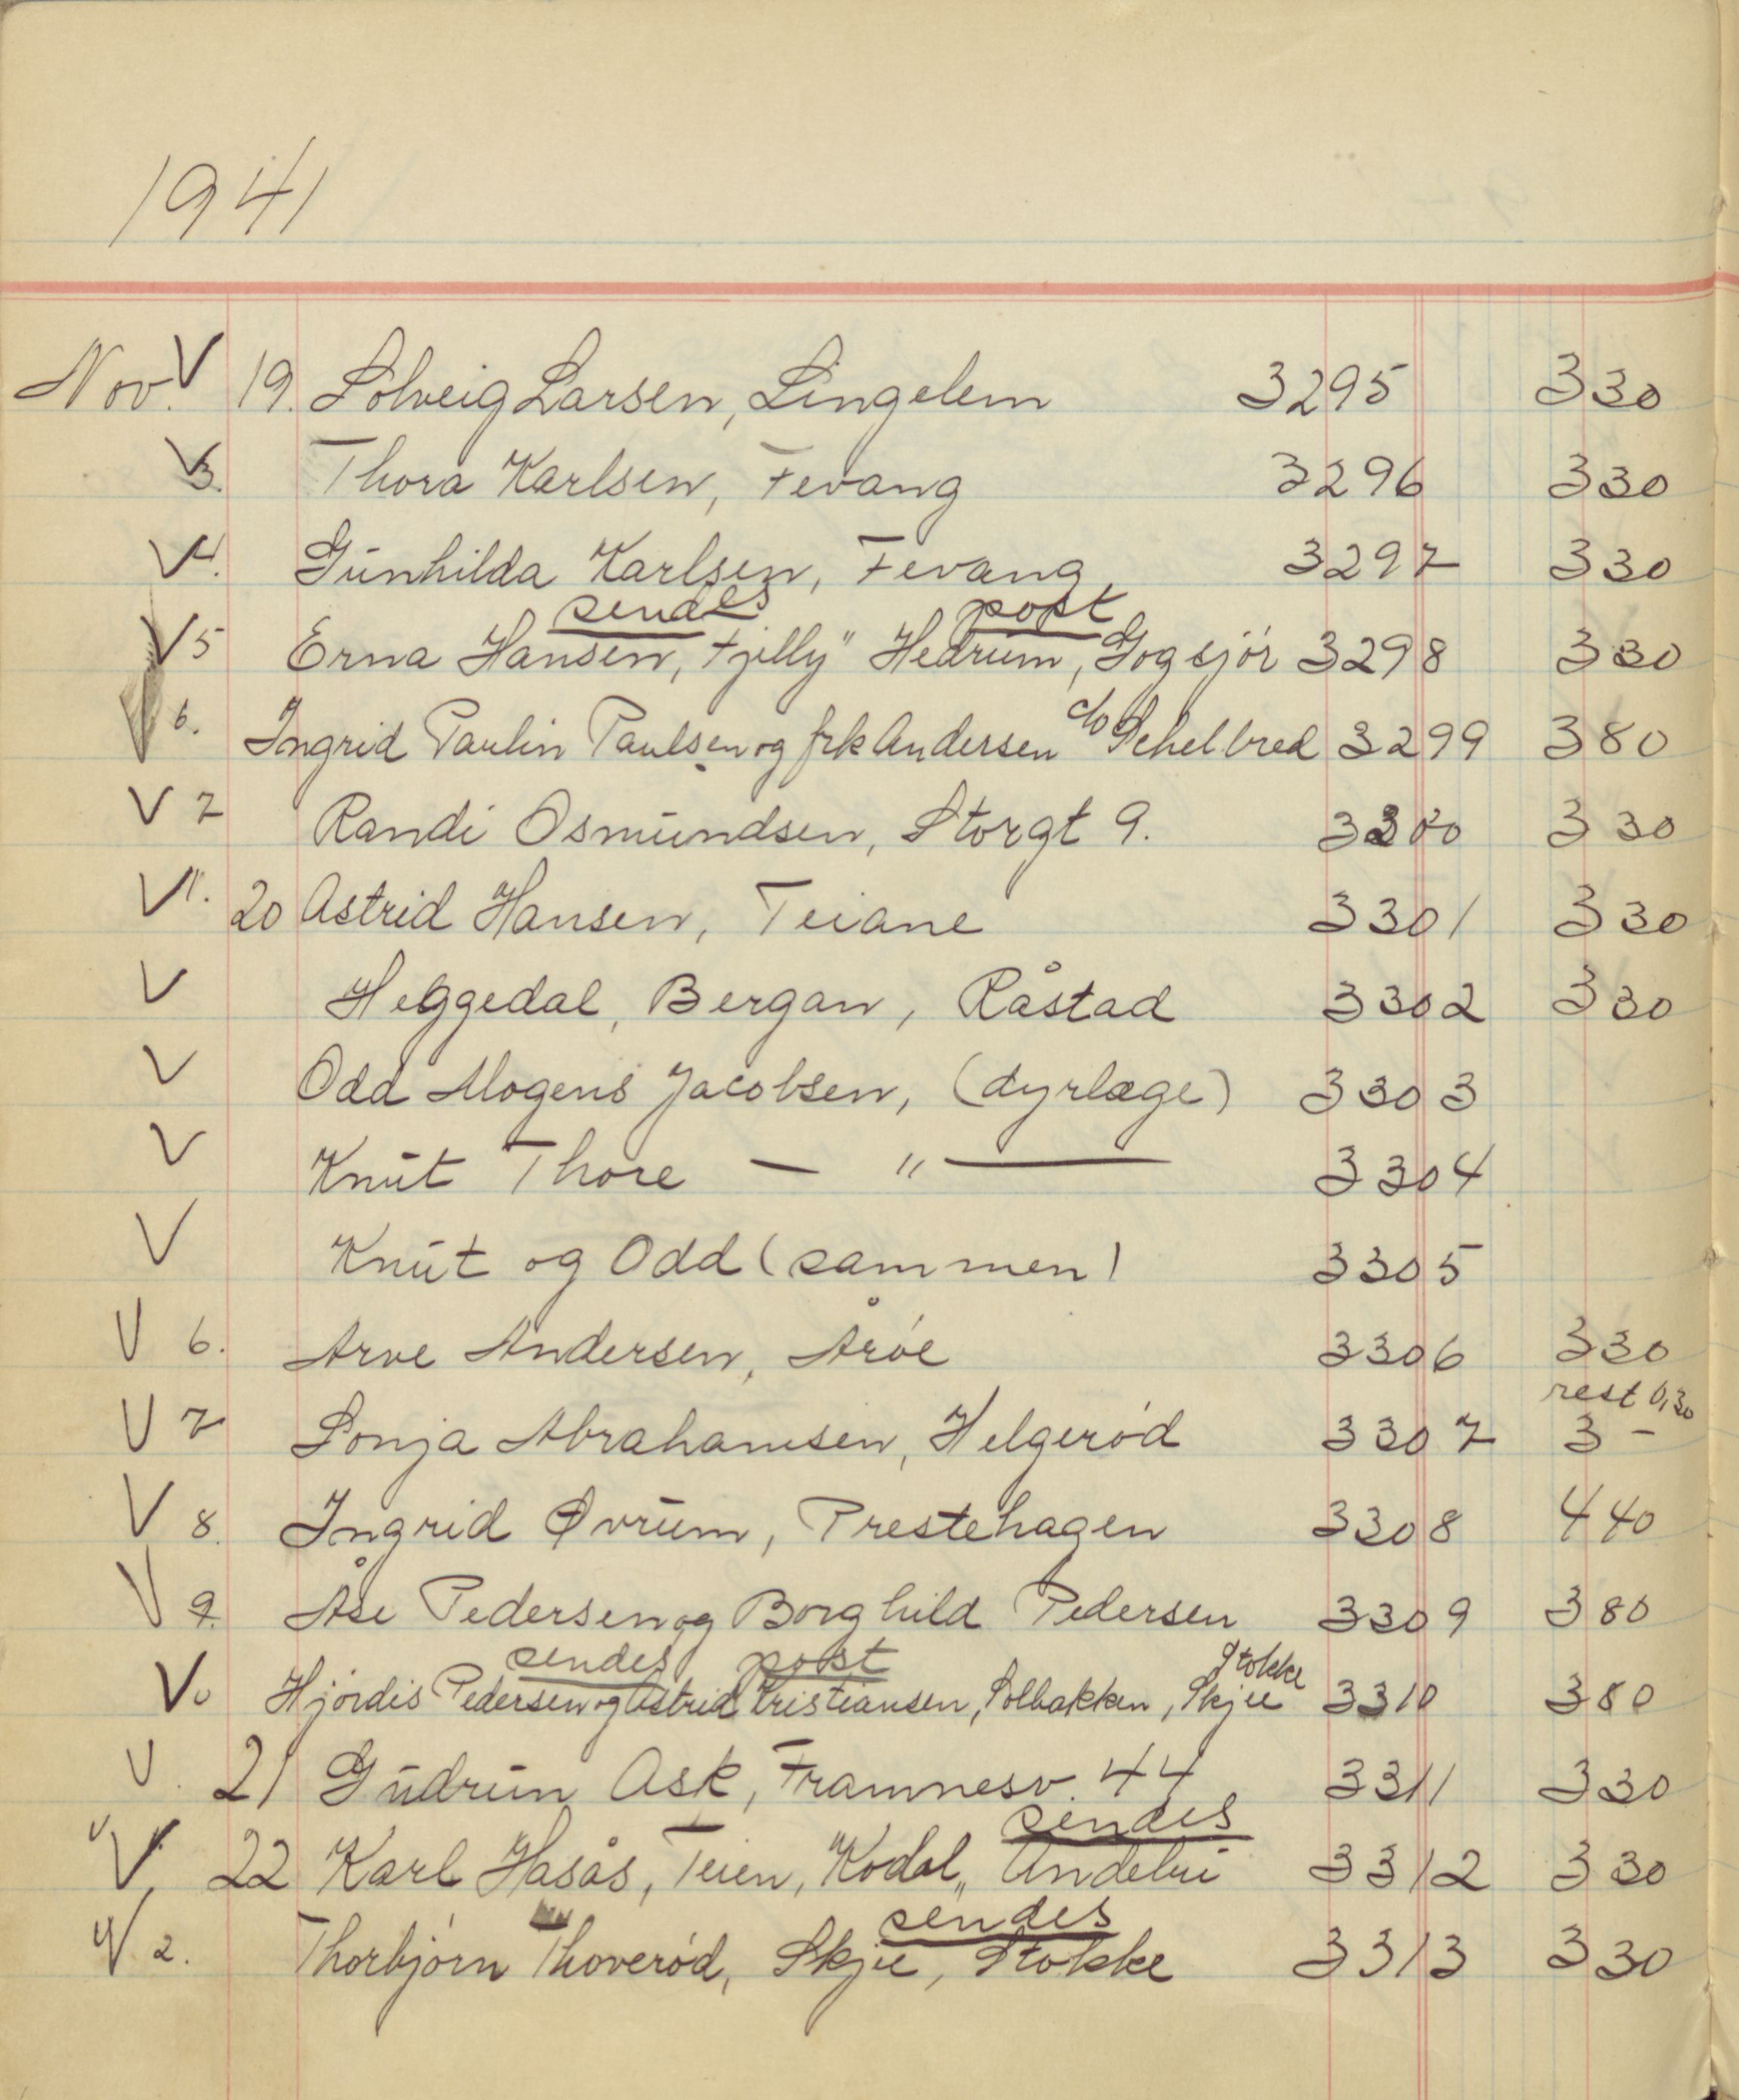 1941
Nov. V 19. Solveig Larsen, Lingelem 3295 330
V 3. Thora Karlsen, Fevang 3296 330
V 4. Gunhilda Karlsen, Fevang, 3297 330
sendes post
V 5 Erna Hansen, Fjelly" Hedrum, Gogsjør 3298 330
V 6. Ingrid Paulin Paulsen og frk Andersen c/o Schelbred 3299 380
V 7 Randi Osmundsen, Storgt 9. 3300 330
V 1. 20 Astrid Hansen, Teiane 3301 330
V Heggedal, Bergan, Råstad 3302 330
V Odd Mogens Jacobsen, (dyrlæge) 3303
V Knut Thore — " — 3304
V Knut og Odd (sammen) 3305
V 6. Arve Andersen, Årøe 3306 330
rest 0,30
V 7 Sonja Abrahamsen, Helgerød 3307 3 -
V 8. Ingrid Øvrum, Prestehagen 3308 440
V 9. Åse Pedersen og Borghild Pedersen 3309 380
sendes post Stokke
V 0 Hjørdis Pedersen og Astrid Kristiansen, Solbakken, Skjee 3310 380
V. 21 Gudrun Ask, Framnesv. 44 3311 330
sendes
V. 22 Karl Hasås, Teien, Kodal, Andebu 3312 330
sendes
V 2. Thorbjørn Thoverød, Skjee, Stokke 3313 330